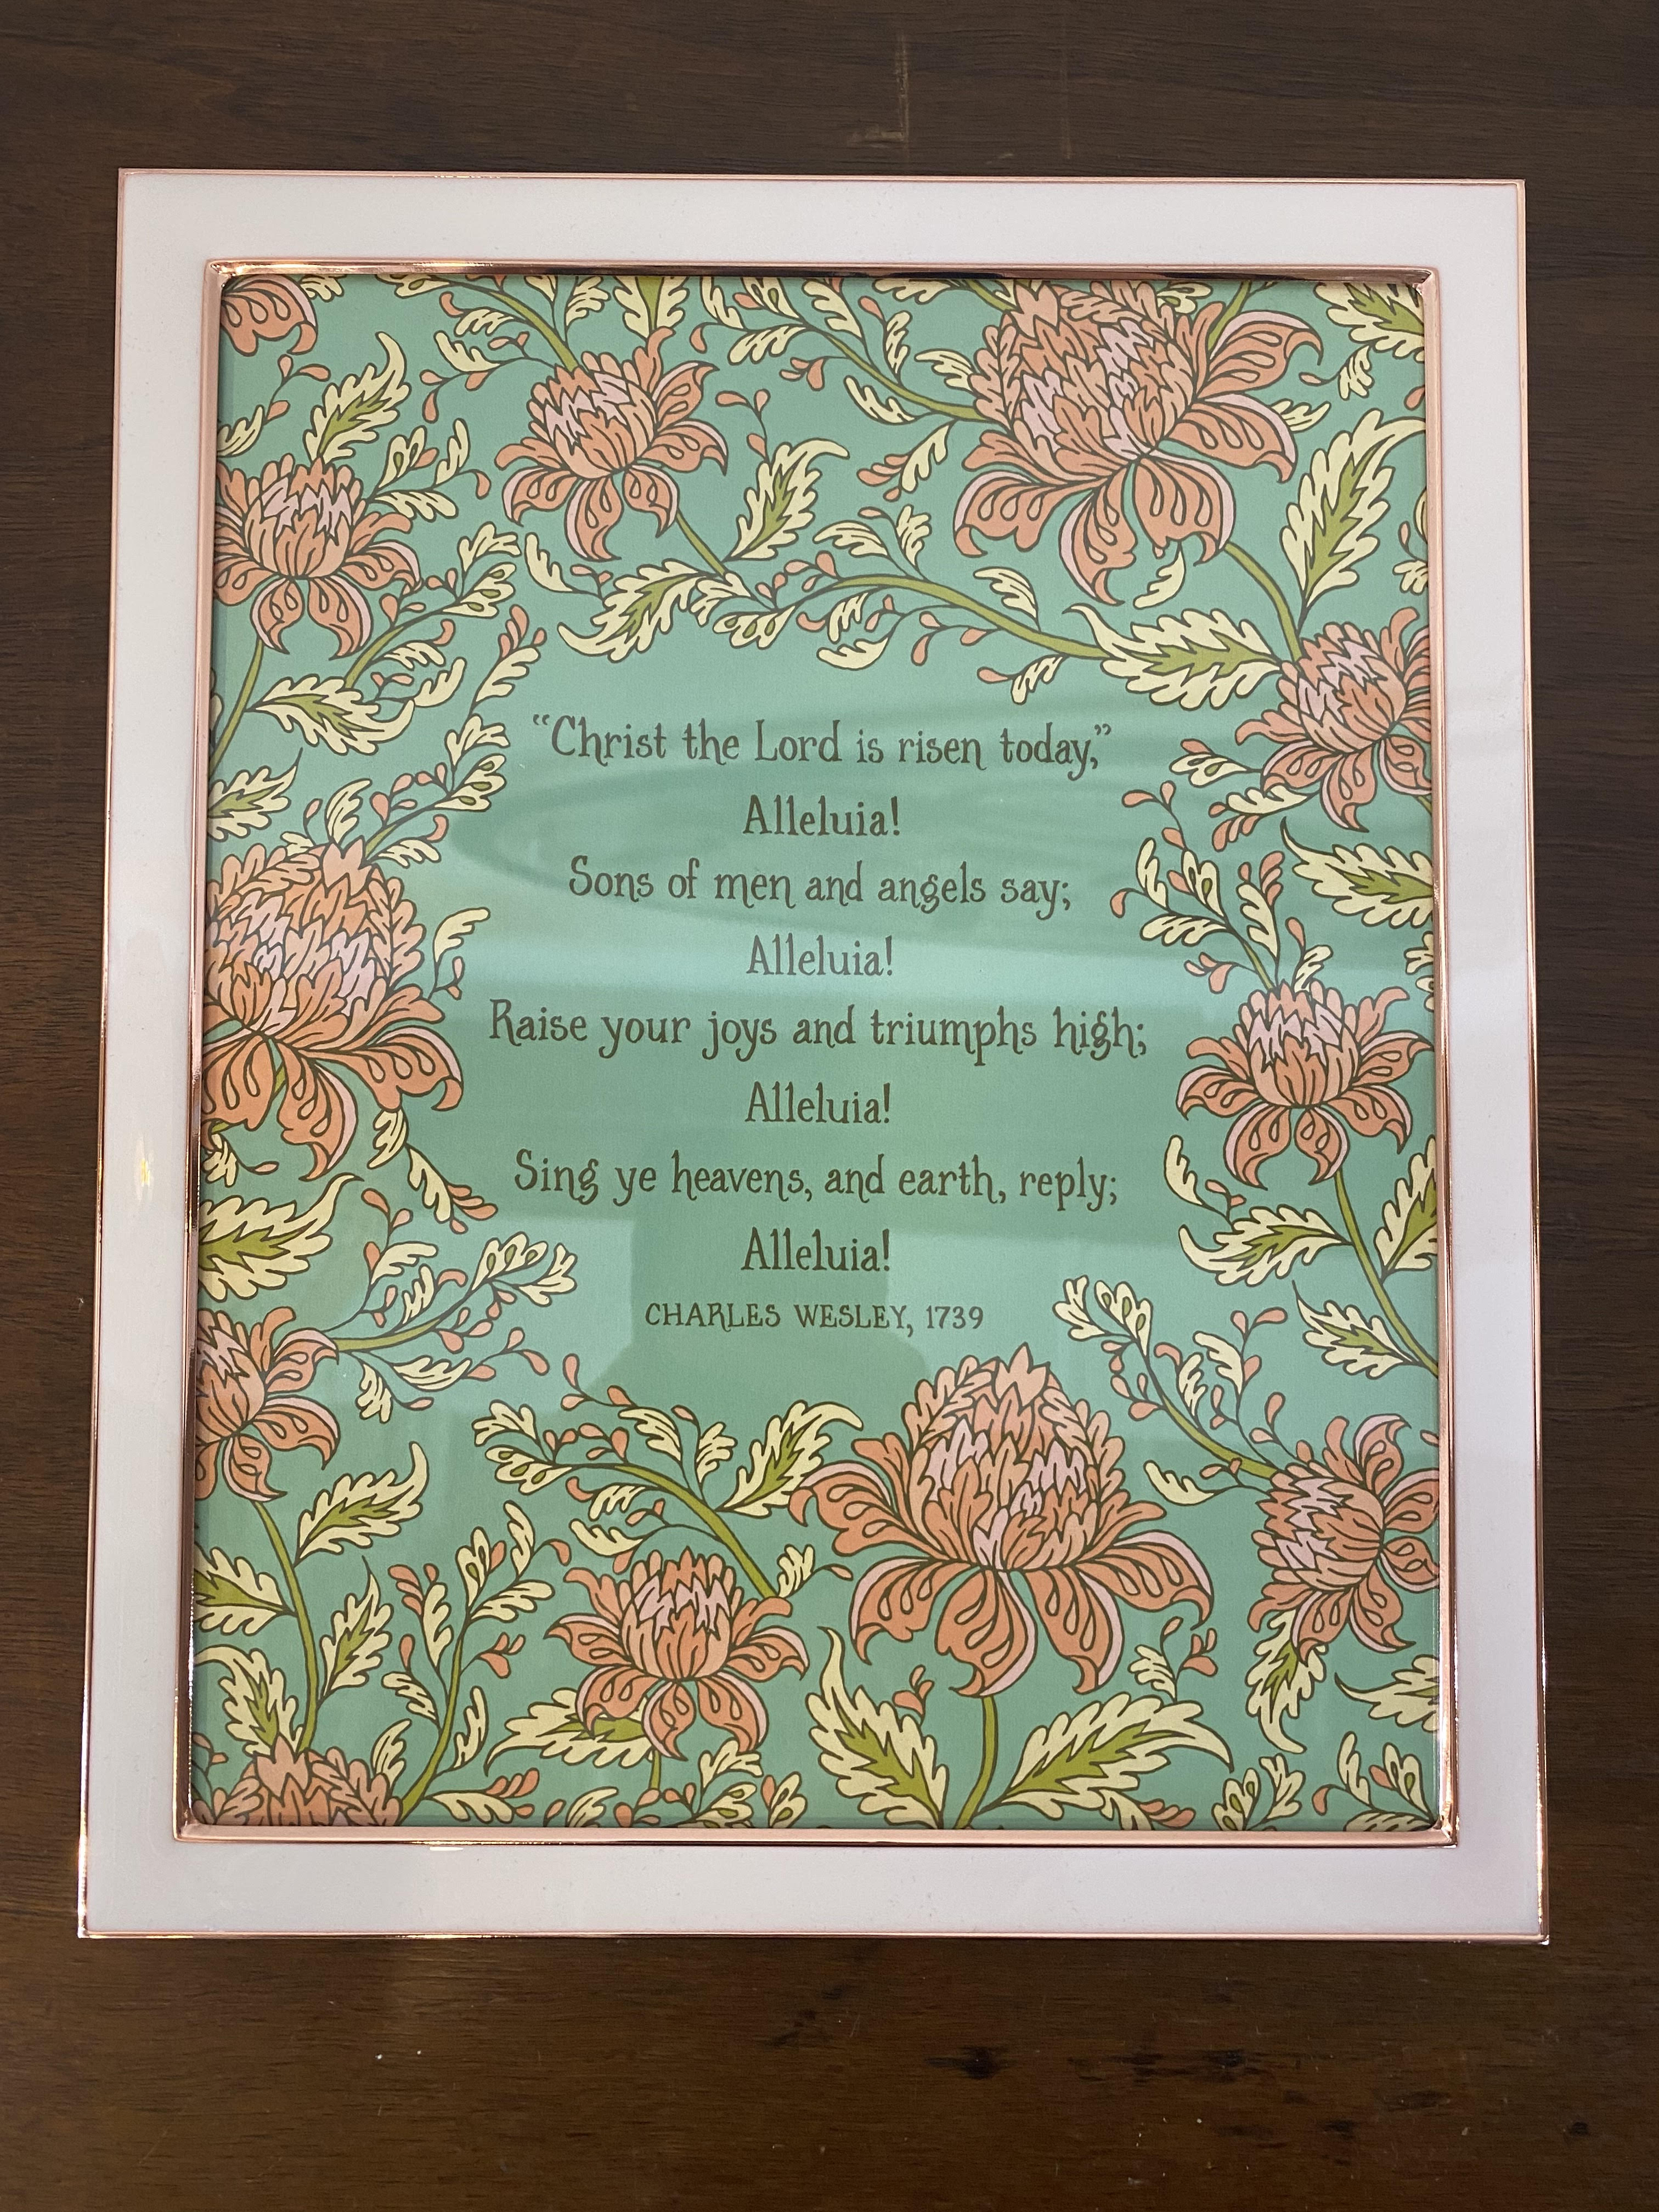 “Christ the Lord is risen today,”
Alleluia!
Sons of men and angels say;
Alleluia!
Raise your joys and triumphs high;
Alleluia!
Sing ye heavens, and earth, reply;
Alleluia!
CHARLES WESLEY, 1739